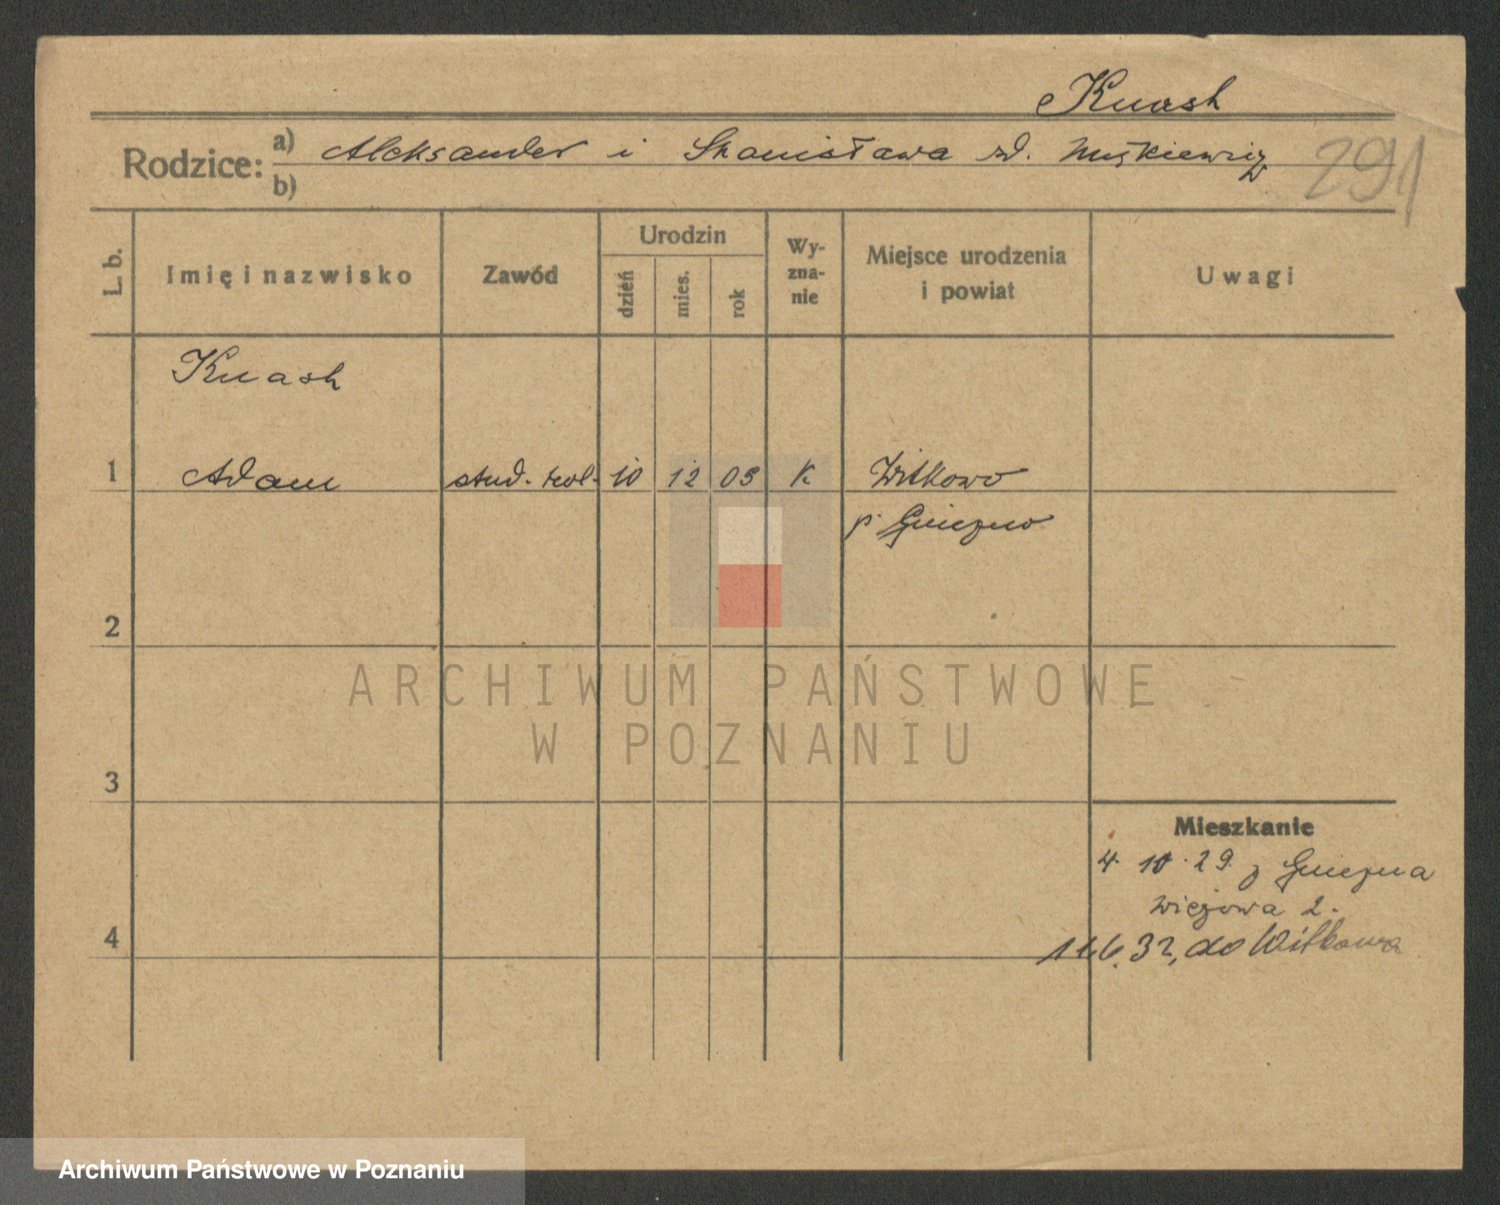 Knash
Rodzice: a) Aleksander i Stanisława zd.
b)
291
L. b. Imię i nazwisko Zawód Urodzin dzień mies. rok Wyznanie Miejsce urodzenia i powiat Uwagi
Knash
1 Adam stud. rol. 10 12 05 K Witkowo
p. Gniezno
2
3
Mieszkanie
4. 10. 29. z Gniezna
Wieżowa 2.
4
11.6.32, do Witkowa
ARCHIWUM PAŃSTWOWE
W POZNANIU
Archiwum Państwowe w Poznaniu